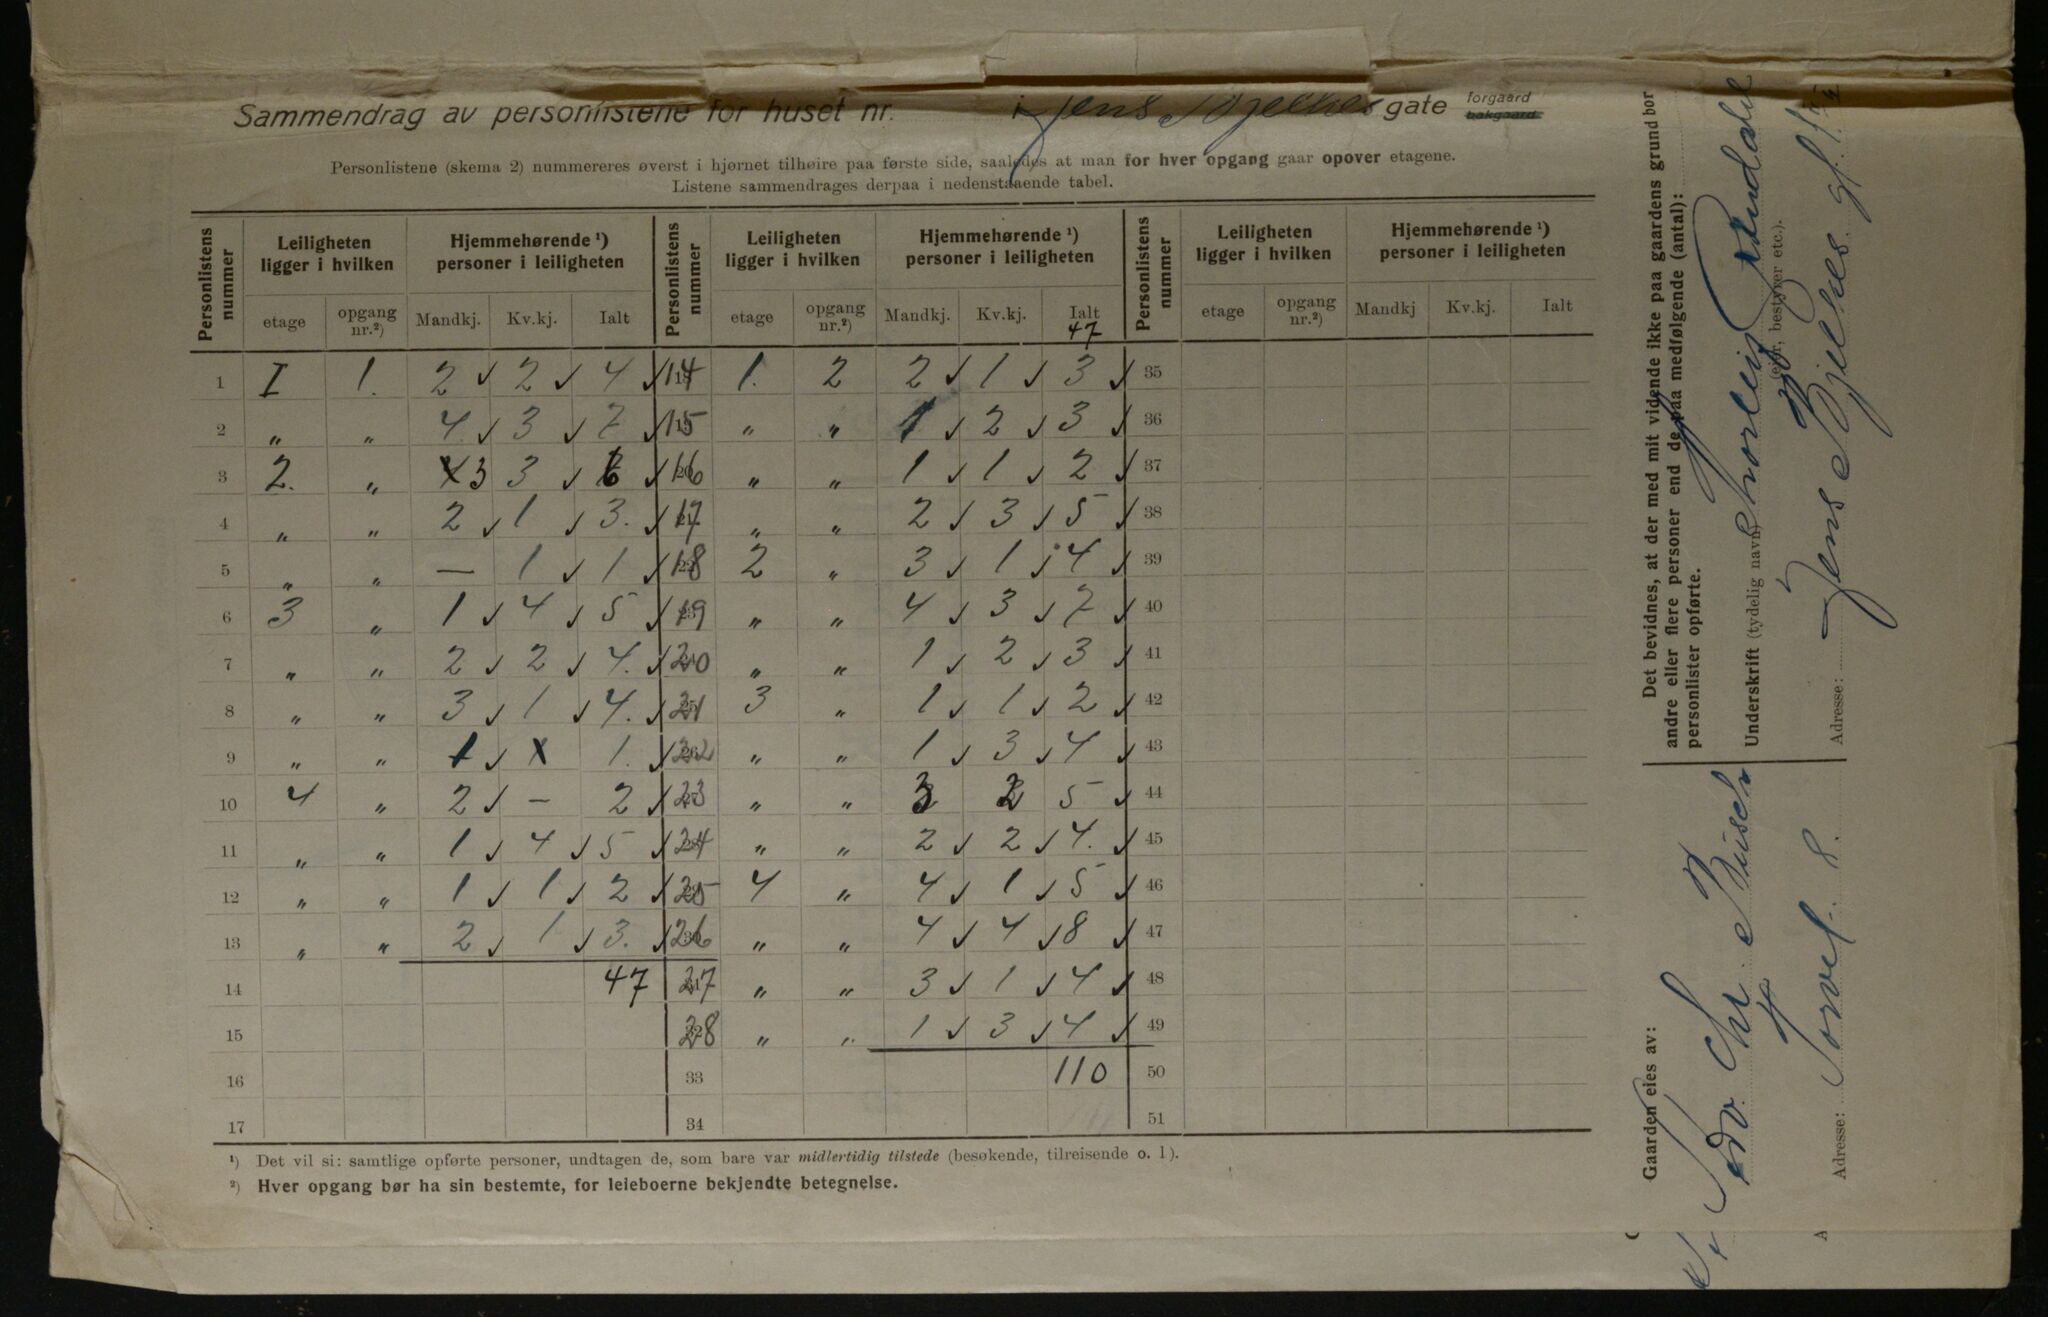 Sammendrag av personlistene for huset nr. i Jens Bjelkes gate forgaard bakgaard
Personlistene (skema 2) nummereres øverst i hjørnet tilhøire paa første side, saaledes at man for hver opgang gaar opover etagene.
Listene sammendrages derpaa i nedenstaaende tabel.
Personlistens nummer Leiligheten ligger i hvilken Hjemmehørende ¹) personer i leiligheten Personlistens nummer Leiligheten ligger i hvilken Hjemmehørende ¹) personer i leiligheten Personlistens nummer Leiligheten ligger i hvilken Hjemmehørende ¹) personer i leiligheten
etage opgang nr.²) Mandkj. Kv.kj. Ialt etage opgang nr.²) Mandkj. Kv.kj. Ialt etage opgang nr.²) Mandkj Kv.kj. Ialt
47
1 I 1. 2 2 4 14 1. 2 2 1 3 35
2 „ „ 4 3 7 15 „ „ 1 2 3 36
3 2. „ 3 3 6 16 „ „ 1 1 2 37
4 „ „ 2 1 3. 17 „ „ 2 3 5 38
5 „ „ — 1 1 18 2 „ 3 1 4 39
6 3 „ 1 4 5 19 „ „ 4 3 7 40
7 „ „ 2 2 4. 20 „ „ 1 2 3 41
8 „ „ 3 1 4. 21 3 „ 1 1 2 42
9 „ „ 1 x 1. 22 „ „ 1 3 4 43
10 4 „ 2 – 2 23 „ „ 3 2 5 44
11 „ „ 1 4 5 24 „ „ 2 2 4. 45
12 „ „ 1 1 2 25 4 „ 4 1 5 46
13 „ „ 2 1 3. 26 „ „ 4 4 8 47
14 47 27 „ „ 3 1 4 48
15 28 „ „ 1 3 4 49
16 33 110 50
17 34 51
¹) Det vil si: samtlige opførte personer, undtagen de, som bare var midlertidig tilstede (besøkende, tilreisende o. l).
²) Hver opgang bør ha sin bestemte, for leieboerne bekjendte betegnelse.
Det bevidnes, at der med mit vidende ikke paa gaardens grund bor
andre eller flere personer end de paa medfølgende (antal):
personlister opførte.
Underskrift (tydelig navn) Thorleif
(eier, bestyrer etc.).
Adresse: Jens Bjelkes gt.
Gaarden eies av:
Adv. Chr.
Adresse: Torvet 8.